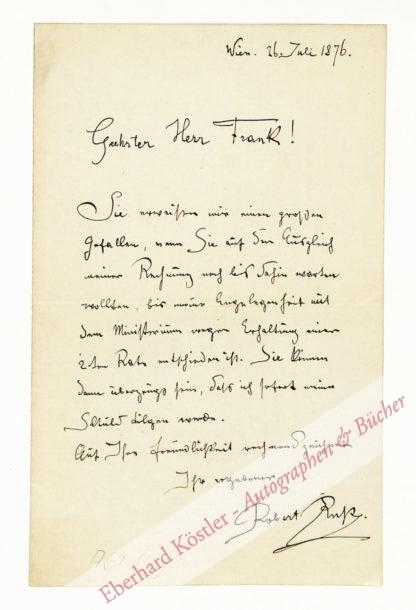 Wien. 26. Juli 1876.
Geehrter Herr Frank!
Sie erweisen mir einen großen
Gefallen, wenn Sie auf den Ausgleich
meiner Rechnung noch bis dahin warten
wollten, bis meine Angelegenheit mit
dem Ministerium wegen Erhaltung einer
2ten Rate entschieden ist. Sie können
dann überzeugt sein, daß ich sofort meine
Schuld tilgen werde.
Auf Ihre Freundlichkeit rechnend zeichnet
Ihr ergebener
Robert Ruß.
Eberhard Köstler - Autographen & Bücher